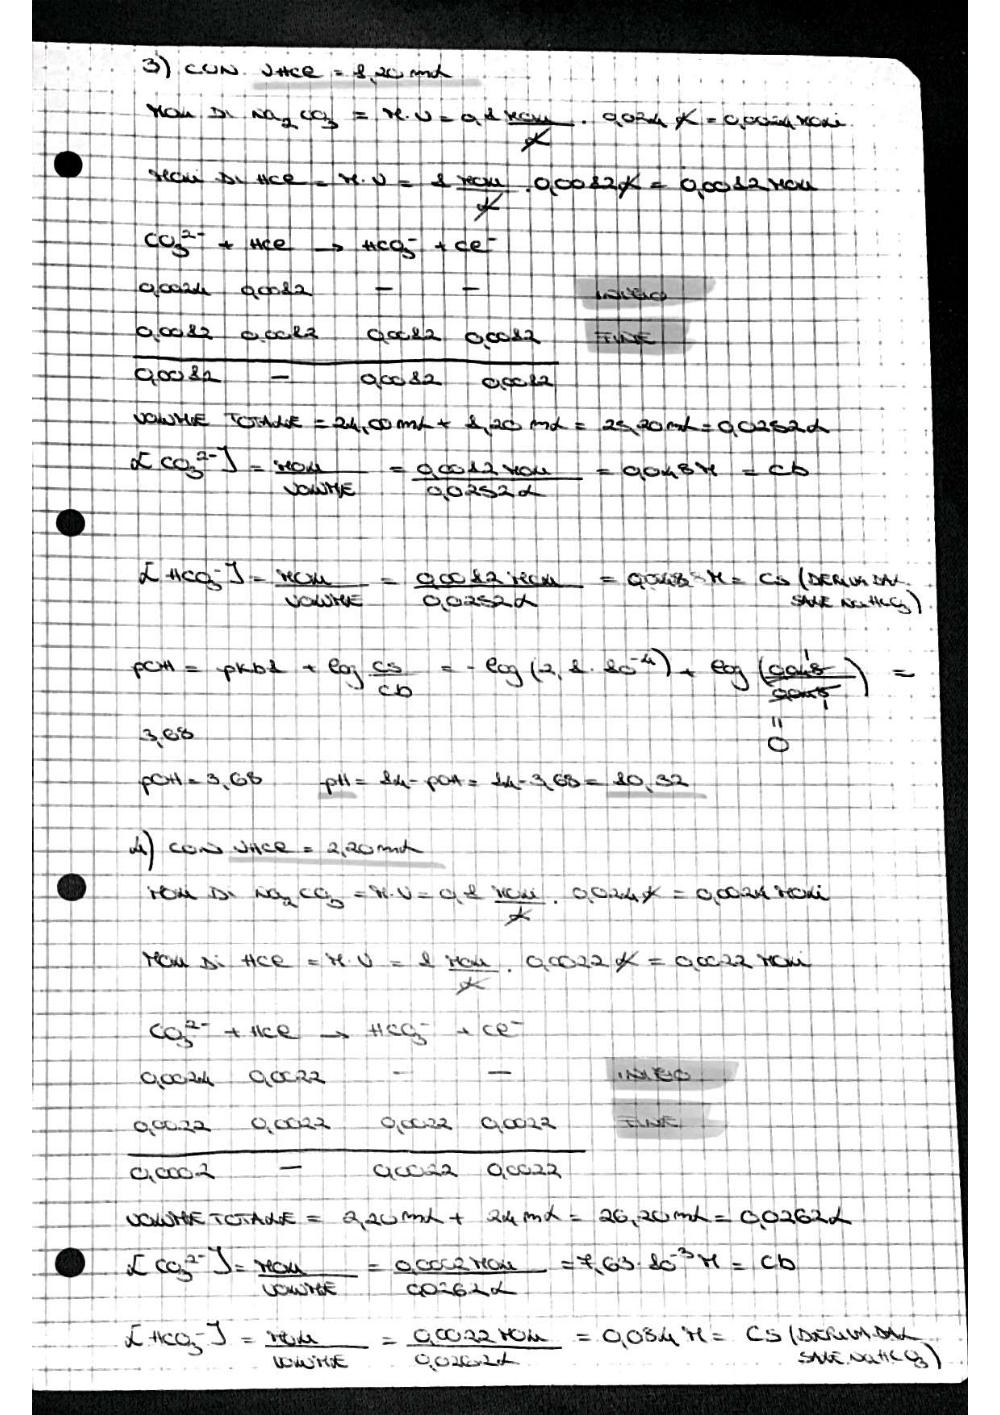 3) CON VHCl = 1,20 mL
MOLI DI Na2CO3 = M·V = 0,1 MOLI/L · 0,024 L = 0,0024 MOLI
MOLI DI HCl = M·V = 1 MOLI/L · 0,0012 L = 0,0012 MOLI
CO3²⁻ + HCl → HCO3⁻ + Cl⁻
0,0024 0,0012 – – INIZIO
0,0012 0,0012 0,0012 0,0012 FINE
0,0012 – 0,0012 0,0012
VOLUME TOTALE = 24,00 mL + 1,20 mL = 25,20 mL = 0,0252 L
[CO3²⁻] = MOLI/VOLUME = 0,0012 MOLI/0,0252 L = 0,048 M = Cb
[HCO3⁻] = MOLI/VOLUME = 0,0012 MOLI/0,0252 L = 0,048 M = CS (DERIVA DAL
SALE NaHCO3)
pOH = pKb1 + log CS/Cb = - log (2,1 · 10⁻⁴) + log (0,048/0,048) =
3,68 " 0
pOH = 3,68 pH = 14 - pOH = 14 - 3,68 = 10,32
4) CON VHCl = 2,20 mL
MOLI DI Na2CO3 = M·V = 0,1 MOLI/L · 0,024 L = 0,0024 MOLI
MOLI DI HCl = M·V = 1 MOLI/L · 0,0022 L = 0,0022 MOLI
CO3²⁻ + HCl → HCO3⁻ + Cl⁻
0,0024 0,0022 – – INIZIO
0,0022 0,0022 0,0022 0,0022 FINE
0,0002 – 0,0022 0,0022
VOLUME TOTALE = 2,20 mL + 24 mL = 26,20 mL = 0,0262 L
[CO3²⁻] = MOLI/VOLUME = 0,0002 MOLI/0,0262 L = 7,63 · 10⁻³ M = Cb
[HCO3⁻] = MOLI/VOLUME = 0,0022 MOLI/0,0262 L = 0,084 M = CS (DERIVA DAL
SALE NaHCO3)